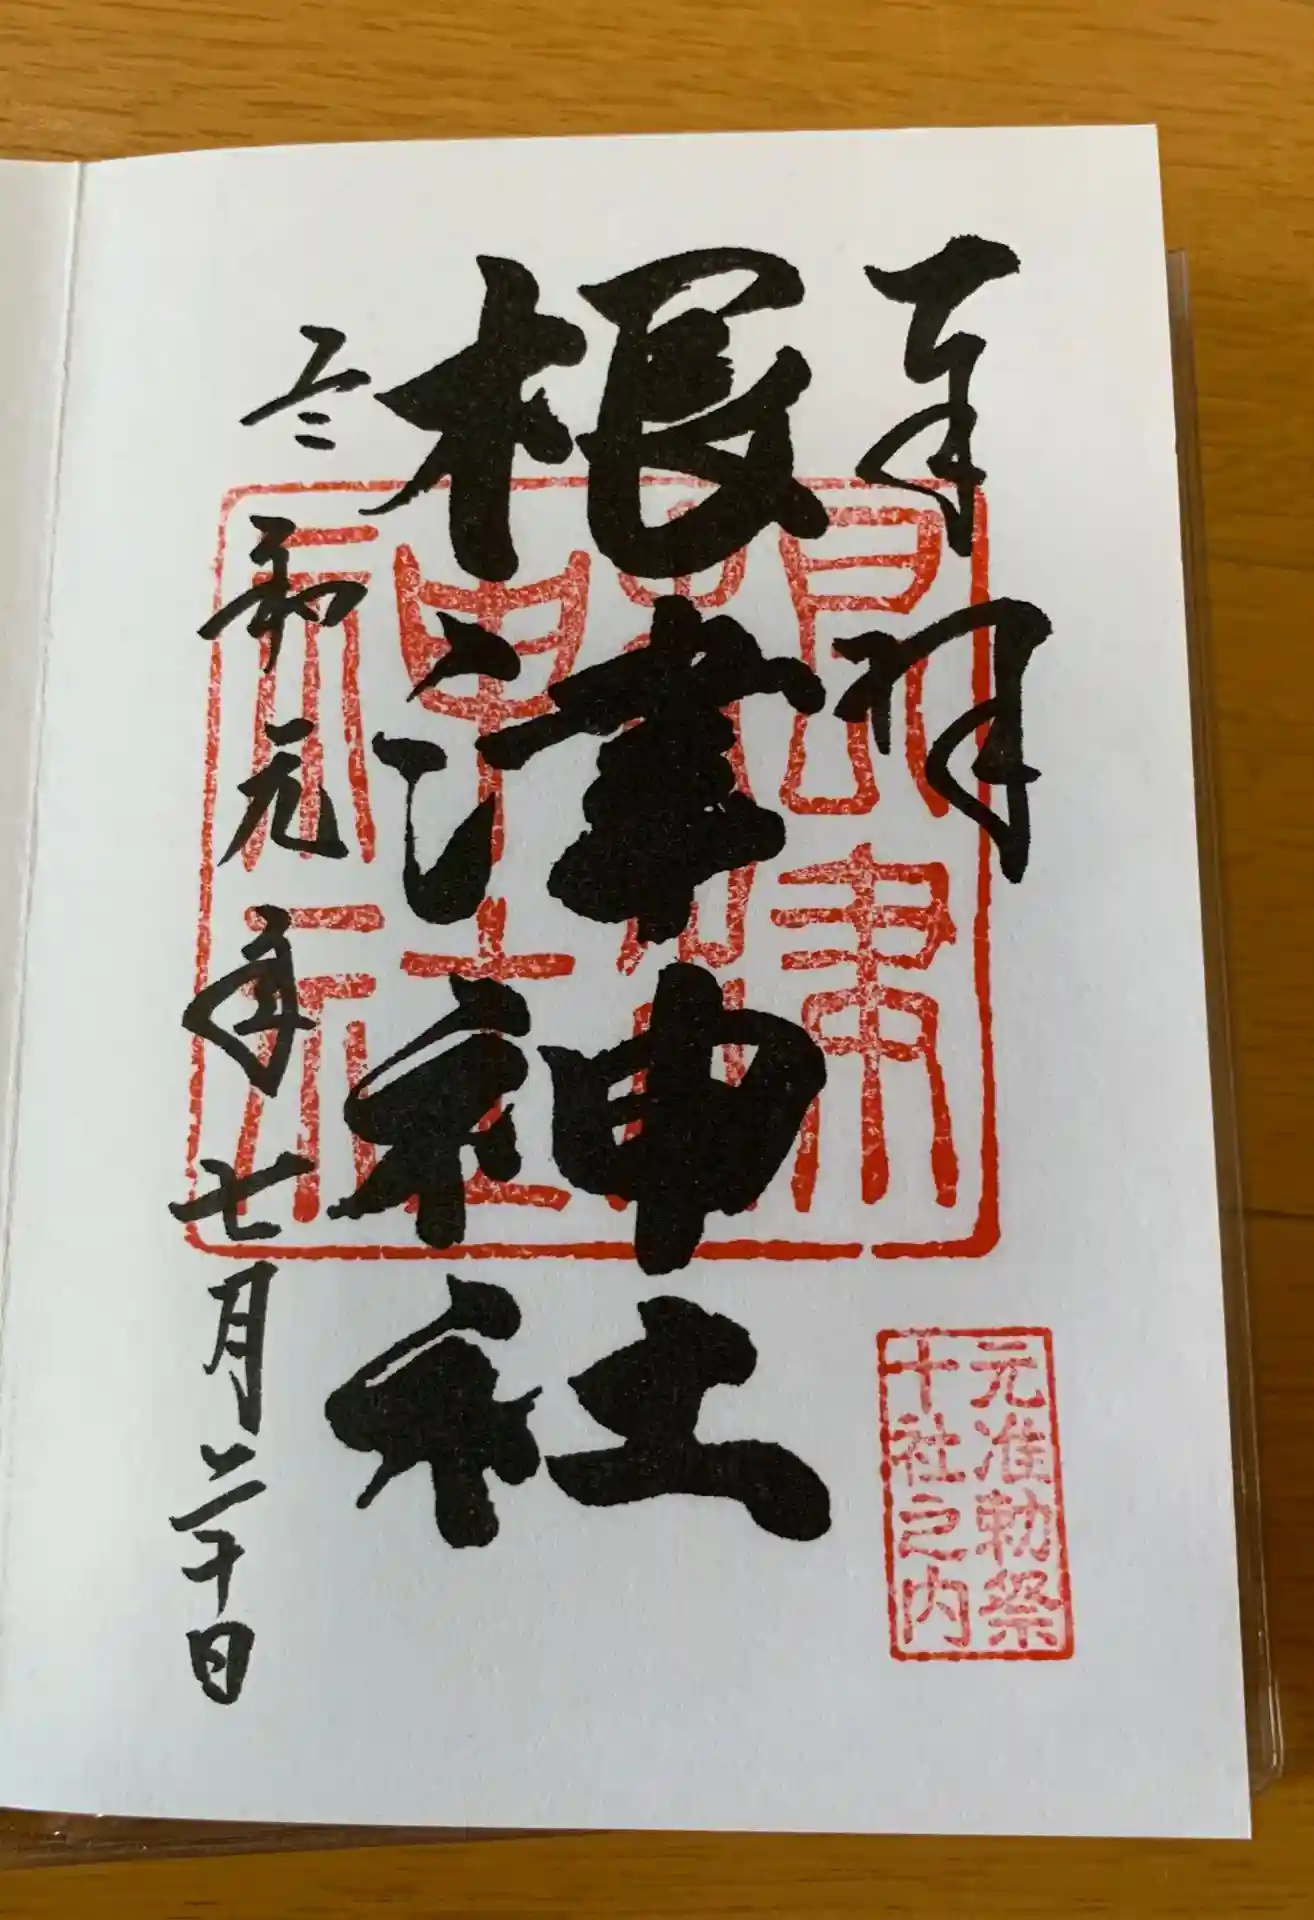 奉拝
根津神社
令和元年七月二十日
根津神社
元准勅祭
十社之内